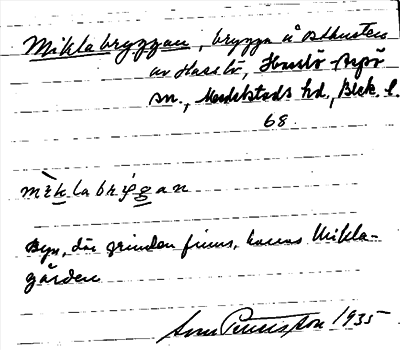 Miklabryggan, brygga å ostkusten
av Hasslö, Hasslö
sn., Medelstads hd., Blek. l.
68.
mìklabrýgan
Byn, där grinden finns, kallas Mikla-
gården
1935